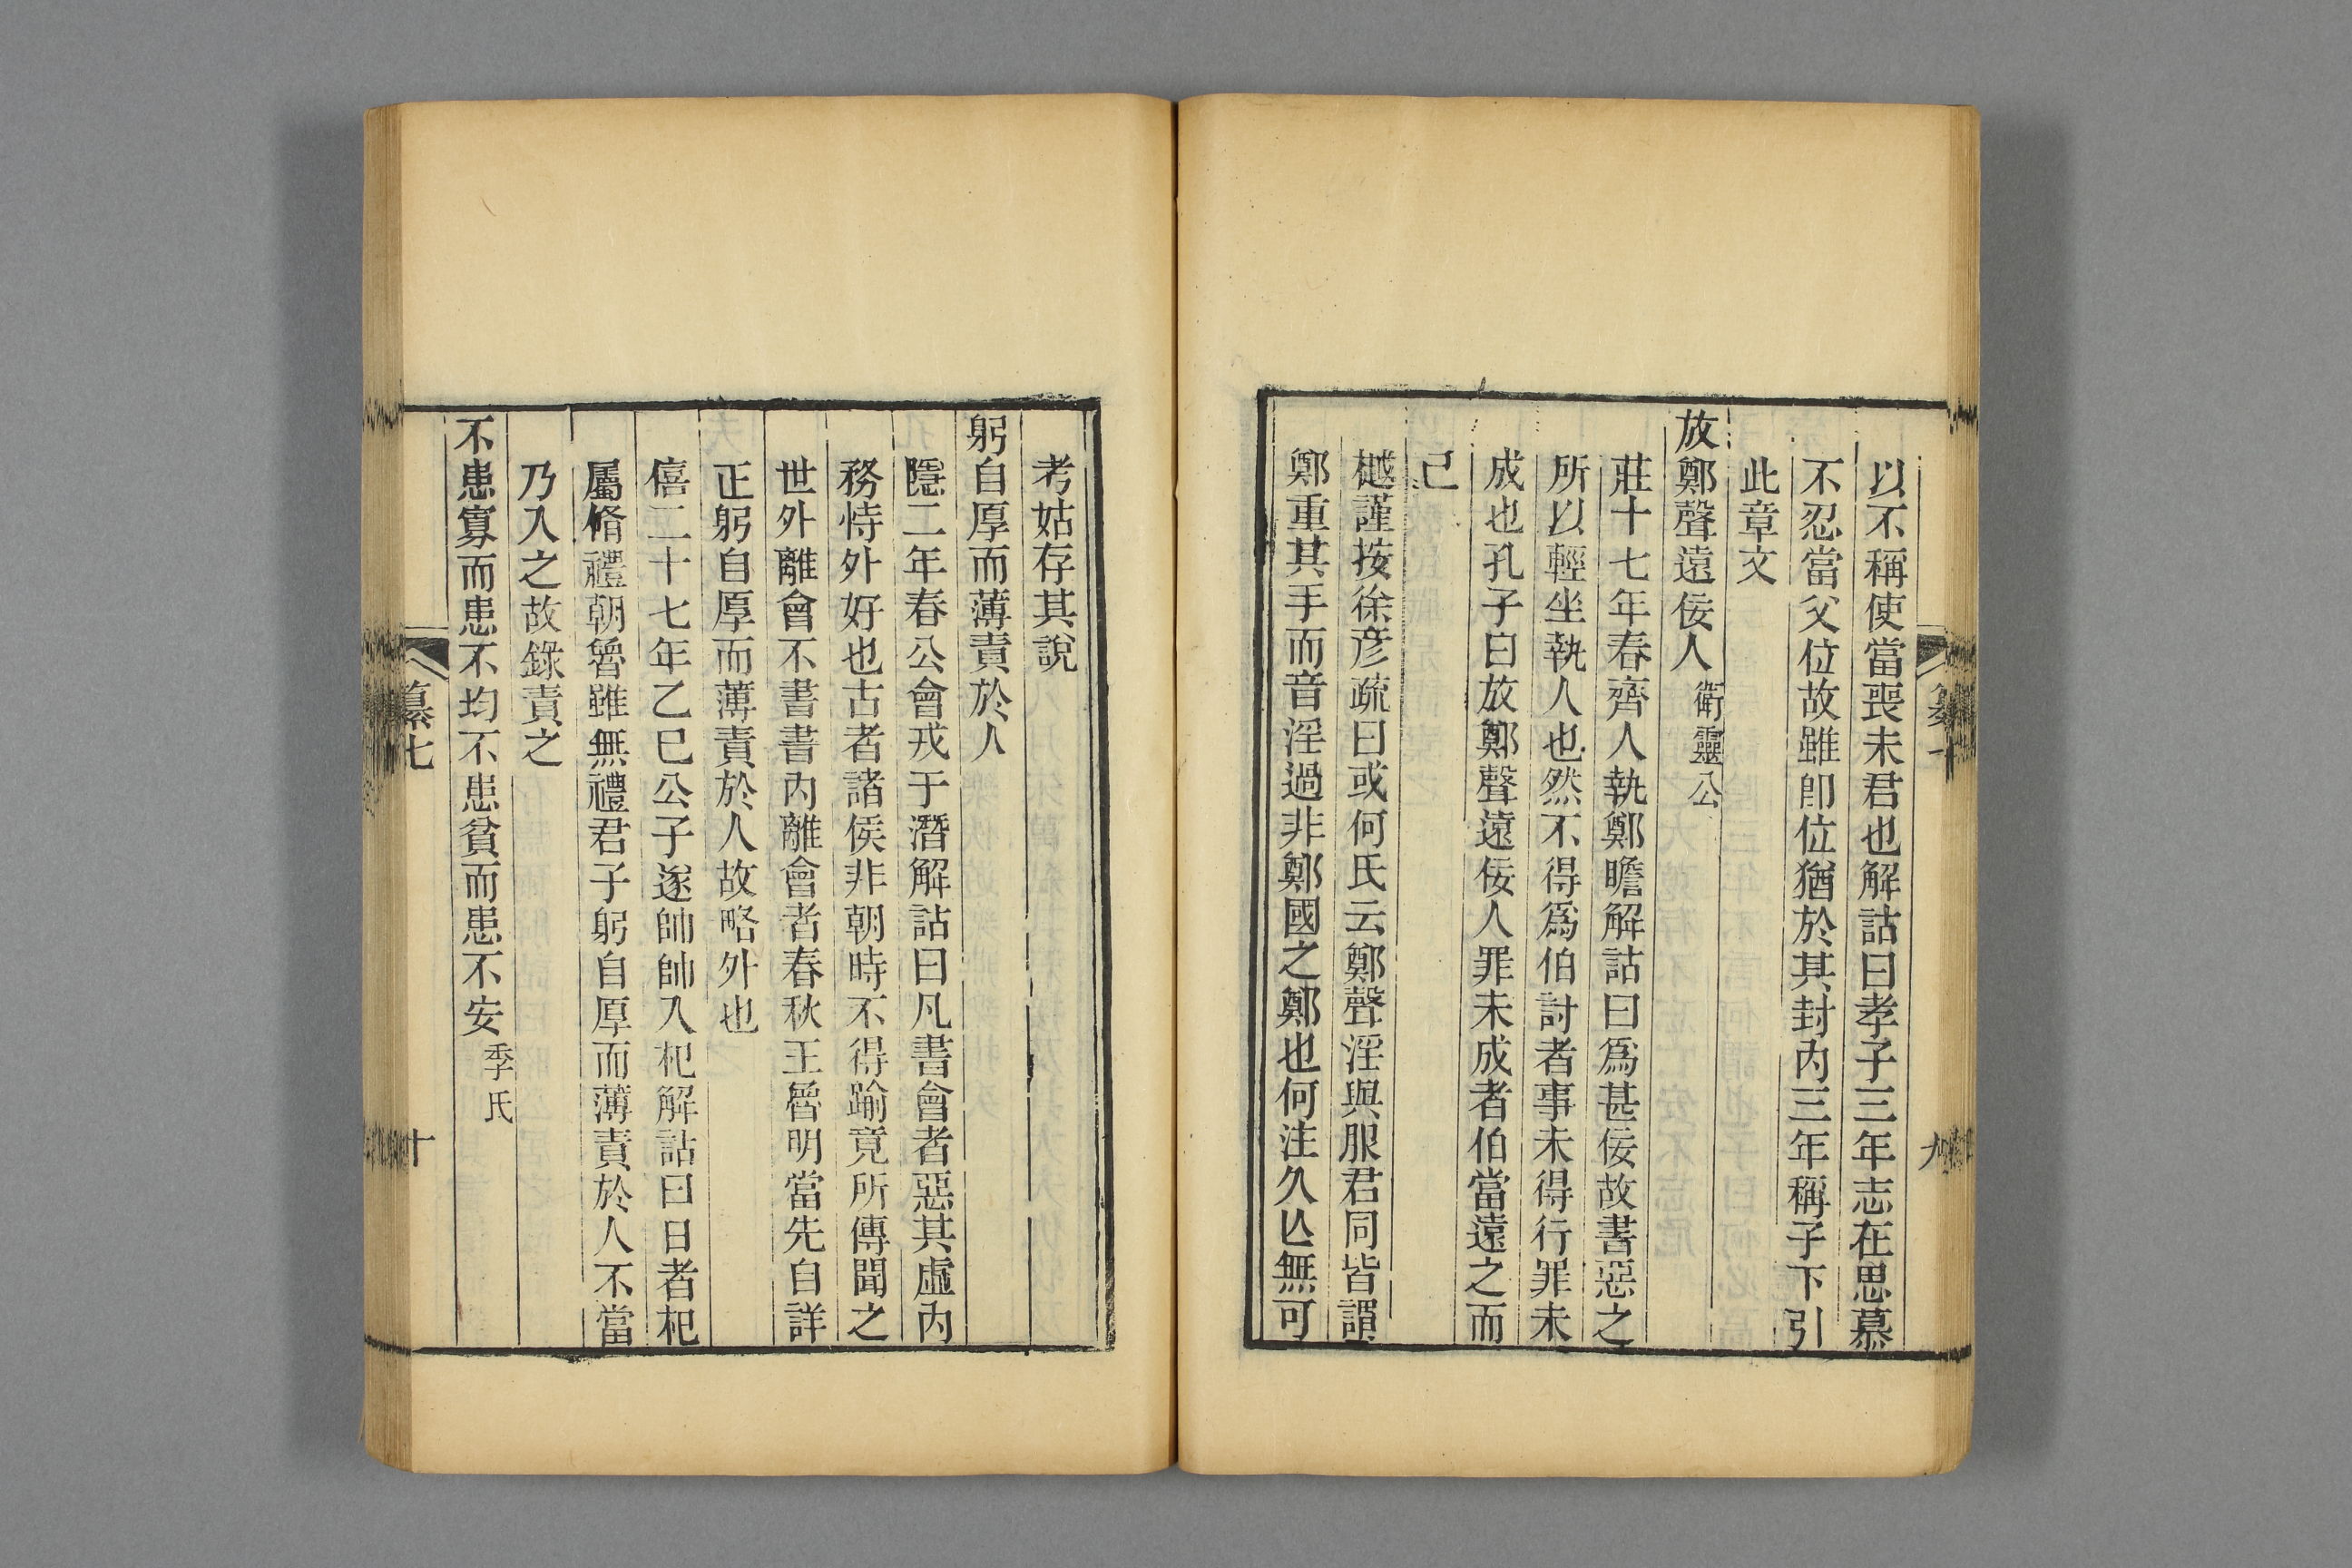 以不稱使當喪未君也解詁曰孝子三年志在思慕
不忍當父位故雖卽位猶於其封內三年稱子下引
此章文
放鄭聲遠佞人 衛靈公
莊十七年春齊人執鄭瞻解詁曰爲甚佞故書惡之
所以輕坐執人也然不得爲伯討者事未得行罪未
成也孔子曰放鄭聲遠佞人罪未成者伯當遠之而
已
樾謹按徐彦疏曰或何氏云鄭聲淫與服君同皆謂
鄭重其手而音淫過非鄭國之鄭也何注久亾無可
九
考姑存其說
躬自厚而薄責於人
隱二年春公會戎于潛解詁曰凡書會者惡其虛內
務恃外好也古者諸侯非朝時不得踰竟所傳聞之
世外離會不書書內離會者春秋王魯明當先自詳
正躬自厚而薄責於人故略外也
僖二十七年乙巳公子遂帥帥入杞解詁曰日者杞
屬脩禮朝魯雖無禮君子躬自厚而薄責於人不當
乃入之故錄責之
不患寡而患不均不患貧而患不安 季氏
纂七
十